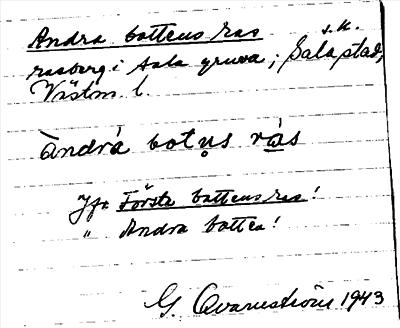 Andra bottens ras
s.k.
rasberg i Sala gruva; Sala stad,
Västm. l.
àndrá botu̥s rà̲s
Jfr Första bottens ras!
„ Andra botten!
G. Qvarnström 1943